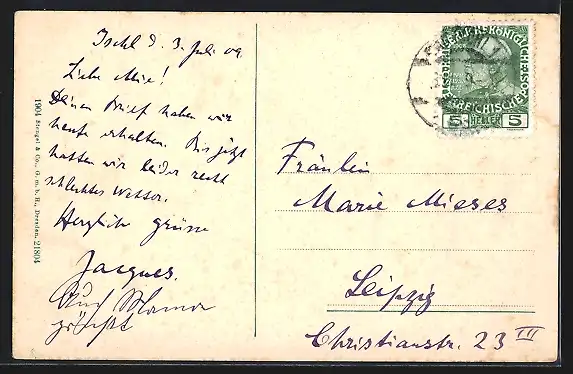 Ischl d. 3. Juli 09.
Liebe Mize!
Deinen Brief haben wir
heute erhalten. Bis jetzt
hatten wir leider recht
schlechtes Wetter.
Herzliche Grüsse
Jacques.
Auch Mama
grüsst
1904 Stengel & Co., G. m. b. H., Dresden. 21804
5 HELLER 5
Fräulein
Marie Mieses
Leipzig
Christianstr. 23 III